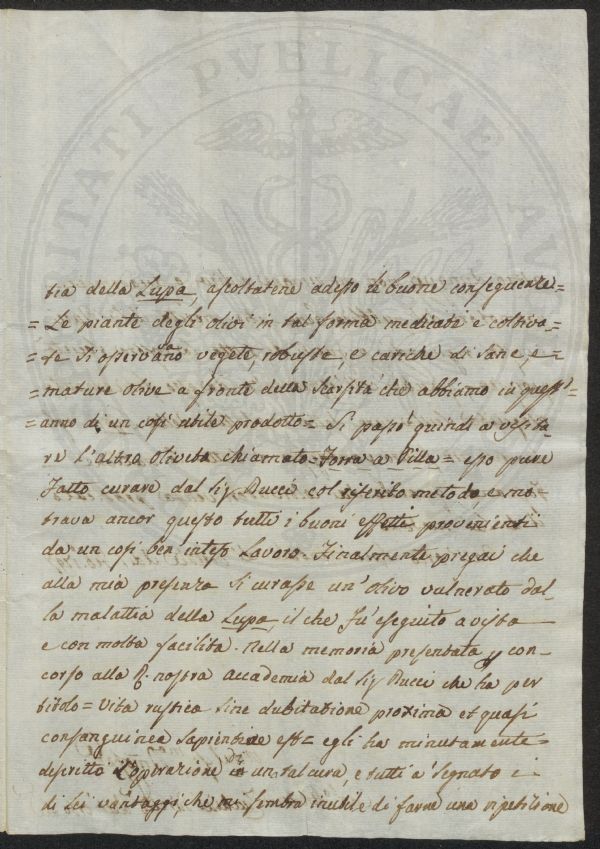 tia della Lupa, ascoltatene adesso le buone conseguenze=
= Le piante degli olivi in tal forma medicate e coltiva-
te si osservano vegete, robuste, e cariche di sane, e=
= mature olive a fronte della scarsità che abbiamo in quest'=
= anno di un così utile prodotto= Si passò quindi a visita-
re l'altro oliveto chiamato= Torra a Pilla= esso pure
fatto curare dal Sig Bucci col riferito metodo, e mo-
trava ancor questo tutti i buoni effetti provenienti
da un così ben inteso Lavoro. Finalmente pregai che
alla mia presenza si curasse un'olivo vulnerato dal-
la malattia della Lupa, il che fù eseguito a vista
e con molta facilità. Nella memoria presentata p con-
corso alla R. nostra accademia dal Sig Bucci che ha per
titolo= Vita rustica sine dubitatione proxima et quasi
consanguinea sapientiae est= egli ha minutamente=
descritto L'operazione in un tal cura, e tutti à segnato i
di Lei vantaggi, che mi sembra inutile di farne una ripetizione
PUBLICAE